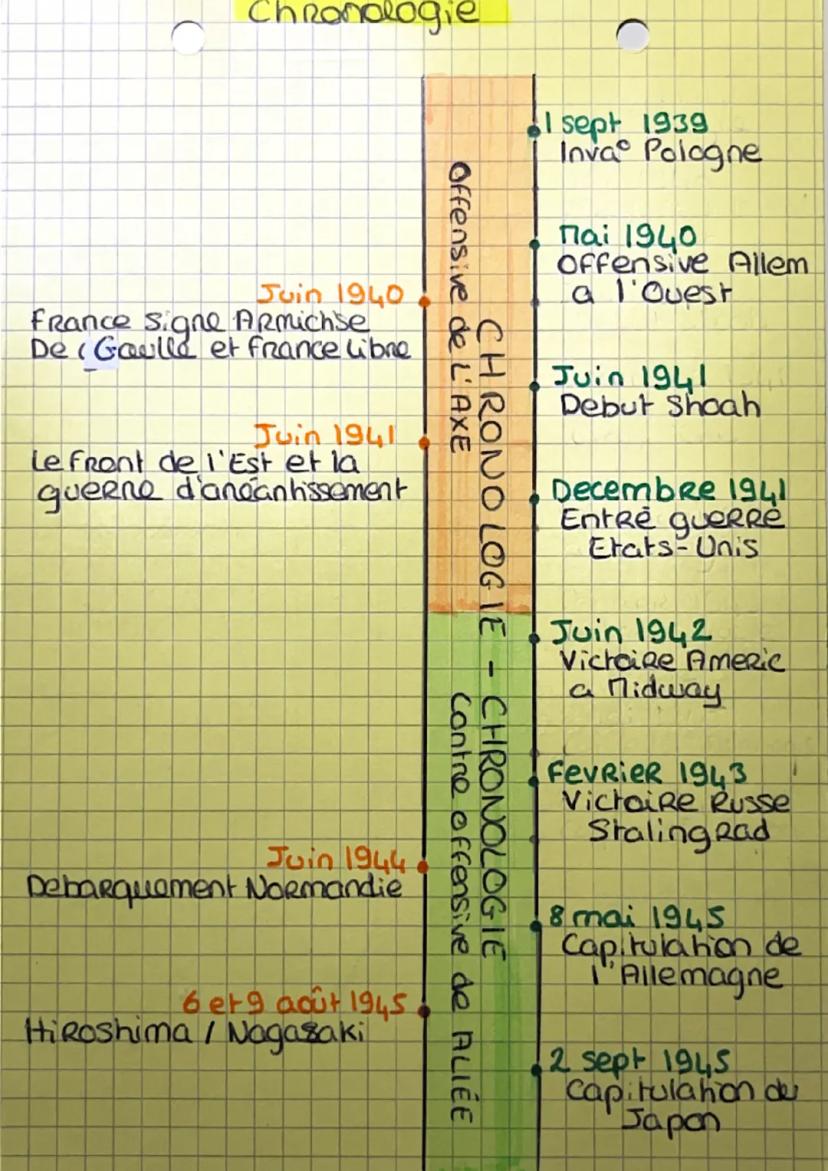 Chronologie
1 sept 1939
Inva° Pologne
Mai 1940
Offensive Allem
a l'Ouest
Juin 1940
France Signe Armichse
De Gaulle et France Libre
Juin 1941
Debut Shoah
Juin 1941
Le front de l'Est et la
guerre d'anéantissement
Decembre 1941
Entré guerre
Etats-Unis
Offensive de l'AXE
CHRONOLOGIE - CHRONOLOGIE
Contre offensive de ALIÉE
Juin 1942
Victoire Americ
a Midway
Fevrier 1943
Victoire Russe
Stalingrad
Juin 1944
Debarquement Normandie
8 mai 1945
Capitulation de
l'Allemagne
6 et 9 août 1945
Hiroshima / Nagasaki
2 sept 1945
Capitulation du
Japon